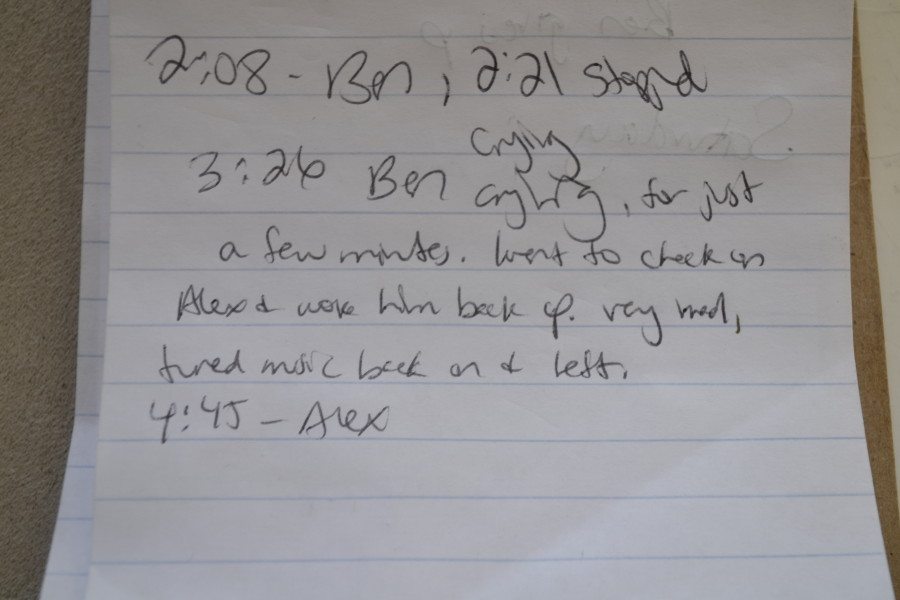 2:08 - Ben, 2:21 stoppd
crying
3:26 Ben crying, for just
a few minutes. Went to check on
Alex & woke him back up. very mad,
turned music back on & left.
4:45 - Alex